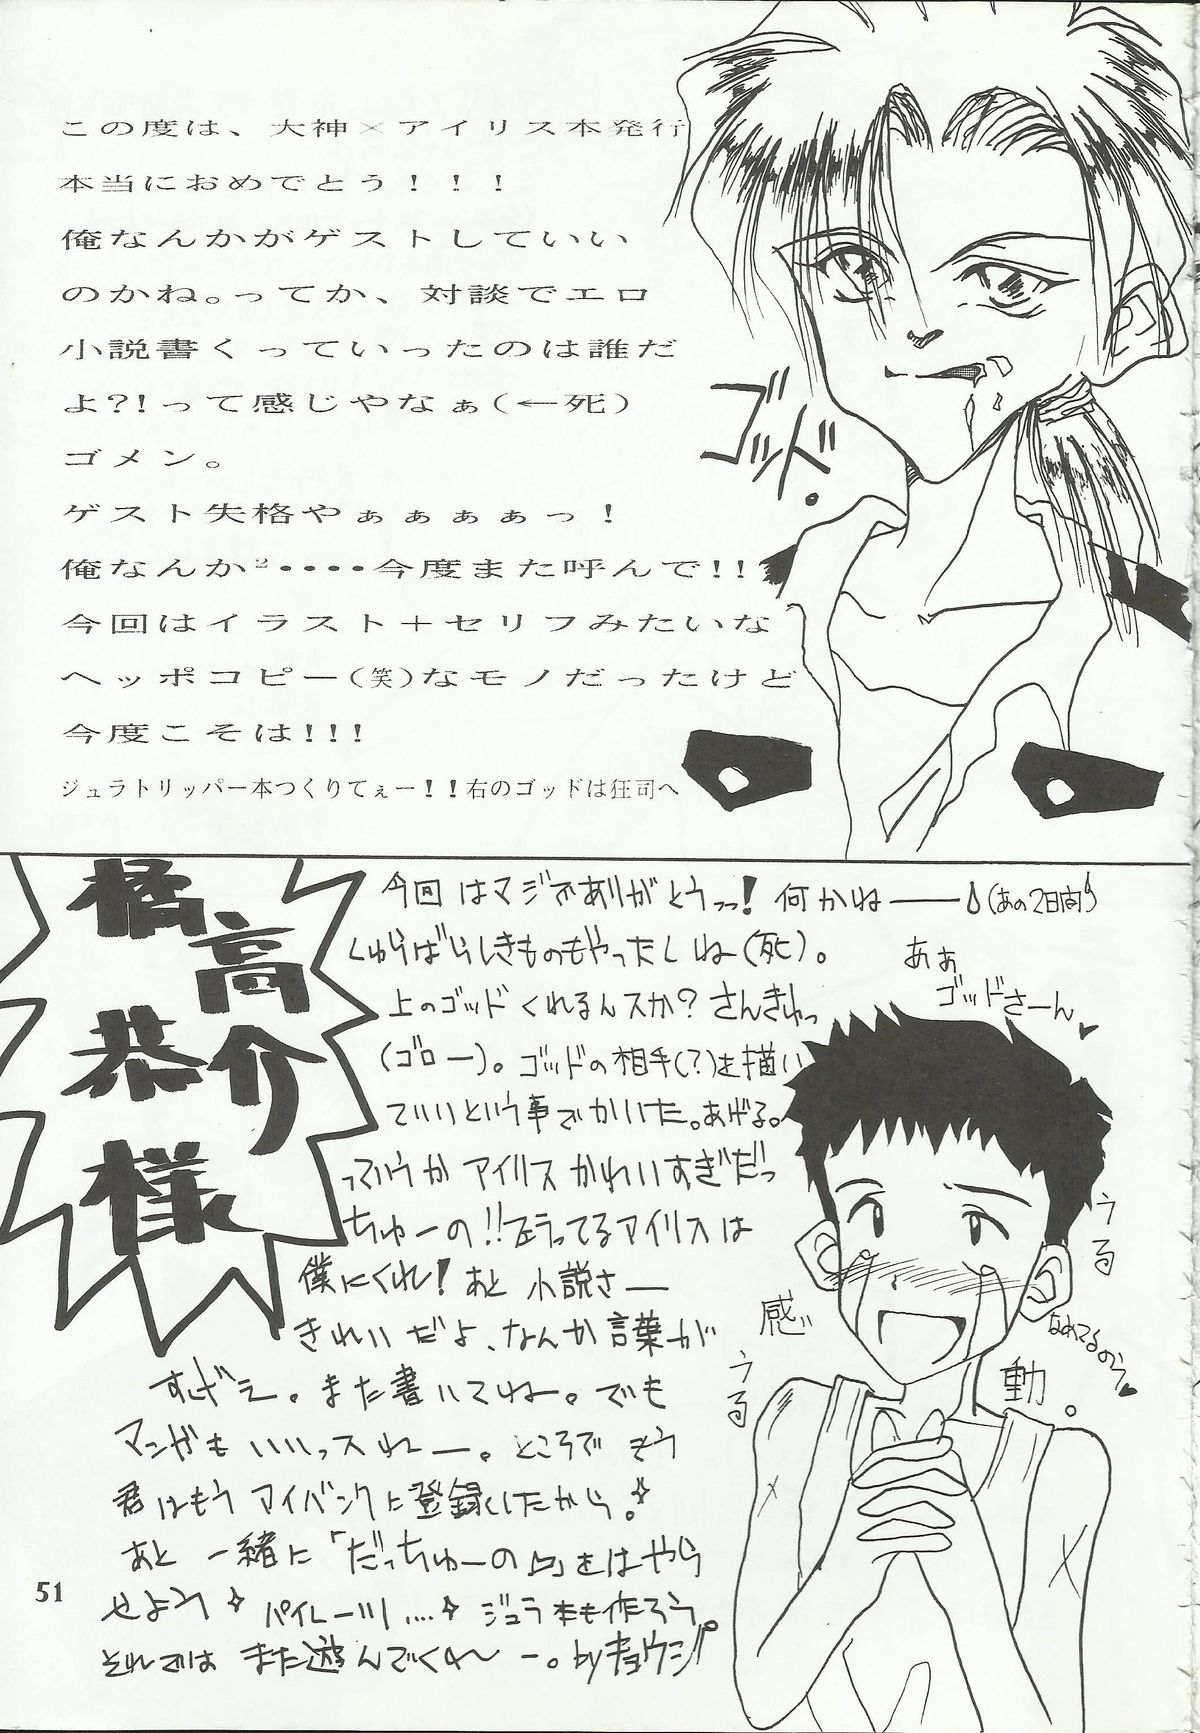 この度は、大神×アイリス本発行
本当におめでとう!!!
俺なんかがゲストしていい
のかね。ってか、対談でエロ
小説書くっていったのは誰だ
よ?!って感じやなぁ(←死)
ゴメン。
ゲスト失格やぁぁぁぁっ!
俺なんか²・・・・今度また呼んで!!
今回はイラスト+セリフみたいな
ヘッポコピー(笑)なモノだったけど
今度こそは!!!
ジュラトリッパー本つくりてぇー!!右のゴッドは狂司へ
ゴッド。
橘高
恭介
様
今回はマジでありがとうっ!何かね――(あの2日間)
しゅらばらしきものもやったしね(死)。
上のゴッドくれるんスか?さんきゅっ
(ゴロー)。ゴッドの相手(?)を描い
ていいという事でかいた。あげる。
っていうかアイリスかわいすぎだっ
ちゅーの!!左うってるアイリスは
僕にくれ!あと小説さー
きれいだよ、なんか言葉が
すげえ。また書いてね。でも
マンガもいいっスねー。ところでもう
君はもうアイバンクに登録したから。
あと一緒に「だっちゅーの」をはやら
せよう パイレーツ.... ジュラ本も作ろう。
それではまた遊んでくれ〜ー。byキョウジ
ああ
ゴッドさーん♥
うる
うる
感
動。
なめてるのう♥
51